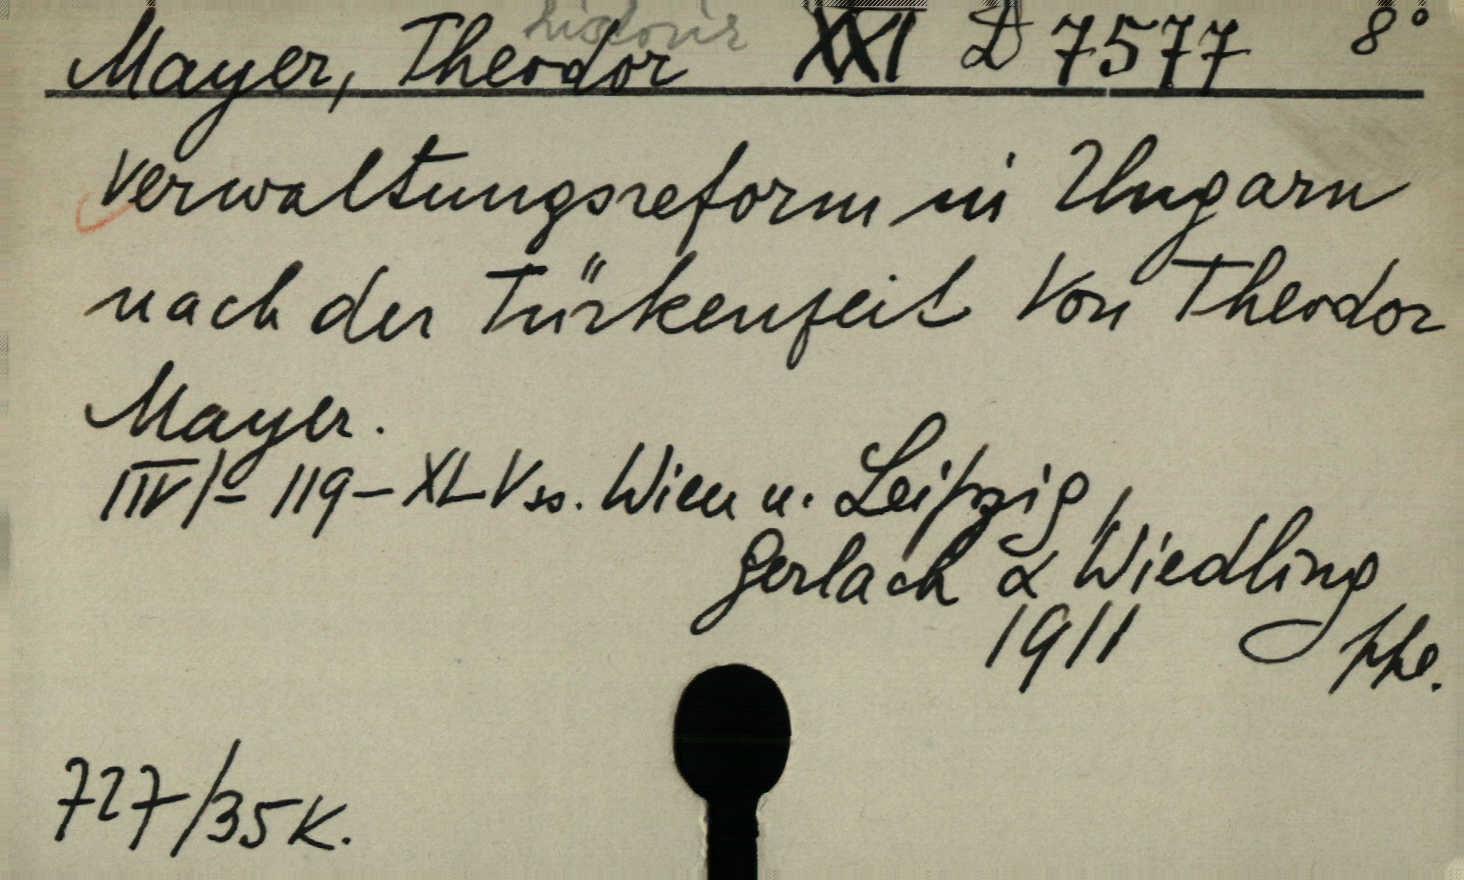 Mayer, Theodor XXI D 7577 8°
Verwaltungsreform in Ungarn
nach der Türkenzeit Von Theodor
Mayer.
119 - XLV ss. Wien u. Leipzig,
Gerlach & Wiedling
1911
727/35 K.